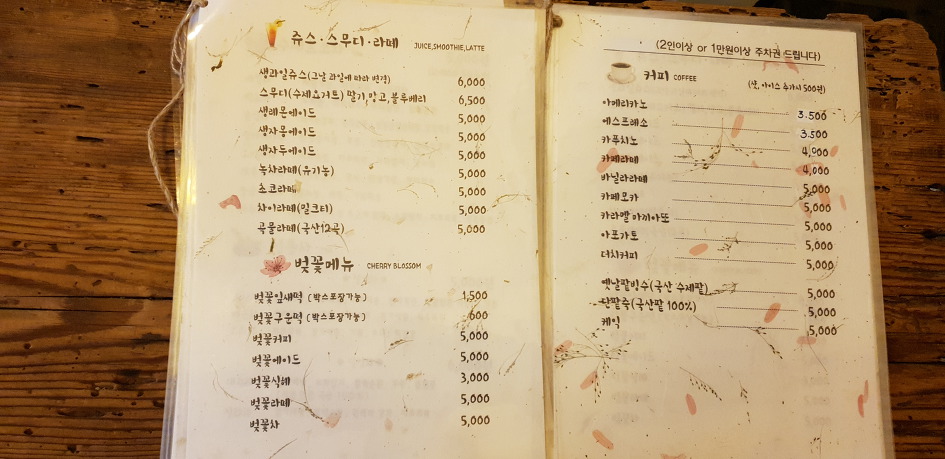 쥬스·스무디·라떼 JUICE,SMOOTHIE,LATTE
생과일쥬스(그날 과일에 따라 변경) 6,000
스무디(수제요거트) 딸기,망고,블루베리 6,500
생레몬에이드 5,000
생자몽에이드 5,000
생자두에이드 5,000
녹차라떼(유기농) 5,000
쵸코라떼 5,000
차이라떼(밀크티) 5,000
곡물라떼(국산12곡) 5,000
벚꽃메뉴 CHERRY BLOSSOM
벚꽃잎새떡 (박스포장가능) 1,500
벚꽃구운떡 (박스포장가능) 600
벚꽃커피 5,000
벚꽃에이드 5,000
벚꽃식혜 3,000
벚꽃라떼 5,000
벚꽃차 5,000
(2인이상 or 1만원이상 주차권 드립니다)
커피 COFFEE
(샷, 아이스 추가시 500원)
아메리카노 3.500
에스프레소 3.500
카푸치노 4,000
카페라떼 4,000
바닐라라떼 5,000
카페모카 5,000
카라멜 마끼아또 5,000
아포가토 5,000
더치커피 5,000
옛날팥빙수(국산 수제팥) 5,000
단팥죽(국산팥 100%) 5,000
케익 5,000